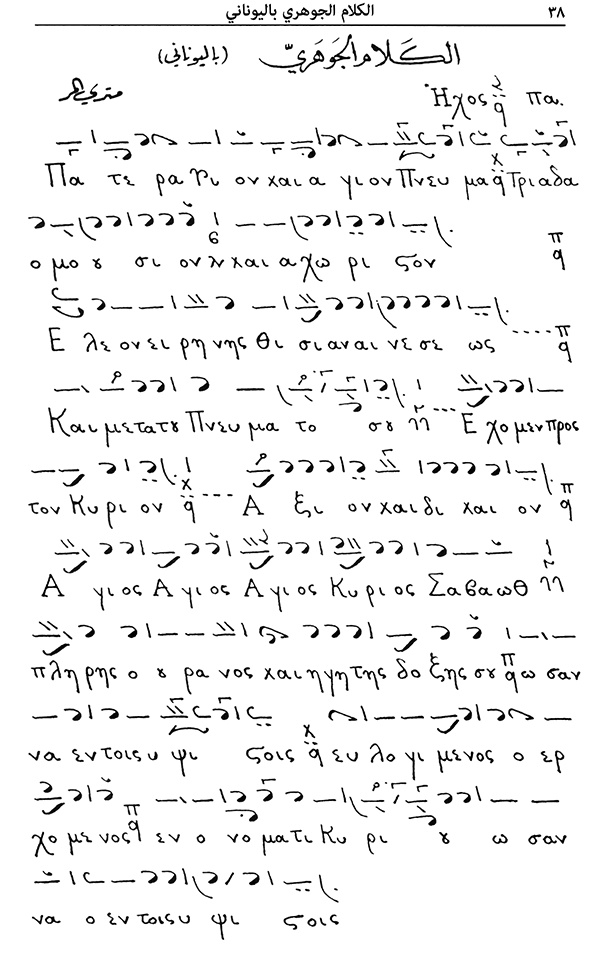 الكلام الجوهري باليوناني ٣٨
الكَلَام الجَوهَريّ (باليوناني)
متري المر Ηχος πα.
Πα τε ρα Υι ον και α γιον Πνευ μα Τριαδα
ο μο ȣ σι ον και αχω ρι ϛον
Ε λε ον ει ρη νης θι σι αν αι νε σε ως
Και μετα τȣ Πνευ μα το σȣ Εχομεν προς
τον Κυρι ον Α ξι ον και δι και ον
Α γιος Αγιος Αγιος Κυριος Σαβαωθ
πληρης ο ȣ ρα νος και η γη της δο ξης σȣ ω σαν
να εν τοις υ ψι ϛοις ευ λο γι μενος ο ερ
χο μενος εν ο νοματι Κυ ρι ȣ ω σαν
να ο εν τοις υ ψι ϛοις